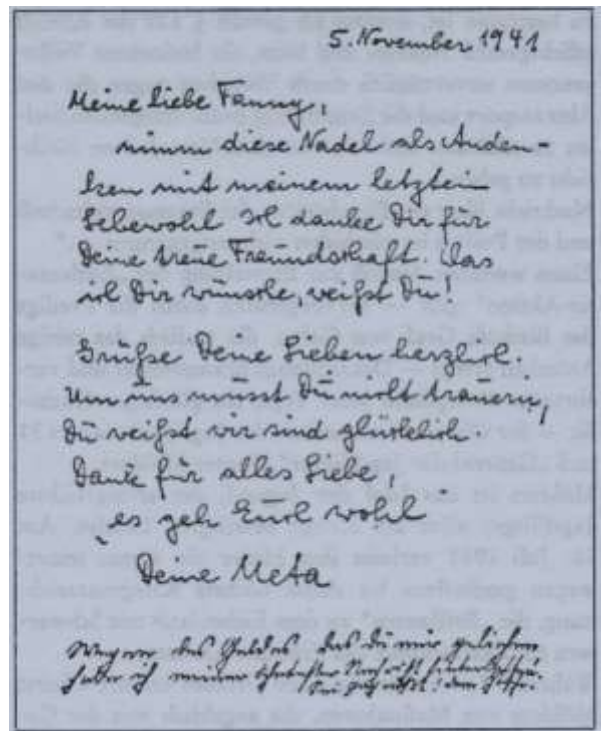 5. November 1941
Meine liebe Fanny,
nimm diese Nadel als Anden-
ken mit meinem letzten
Lebewohl. Ich danke Dir für
Deine treue Freundschaft. Was
ich Dir wünsche, weißt Du!
Grüße Deine Lieben herzlich.
Um uns musst Du nicht trauern,
Du weißt wir sind glücklich.
Danke für alles Liebe,
es geh Euch wohl
Deine Meta
Wegen des Geldes das du mir geliehen
habe ich meiner Schwester Nachricht